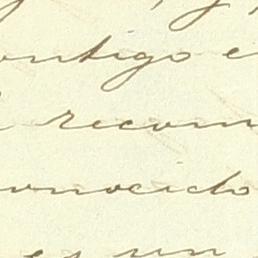 ontigo e
recom
onocido
es un